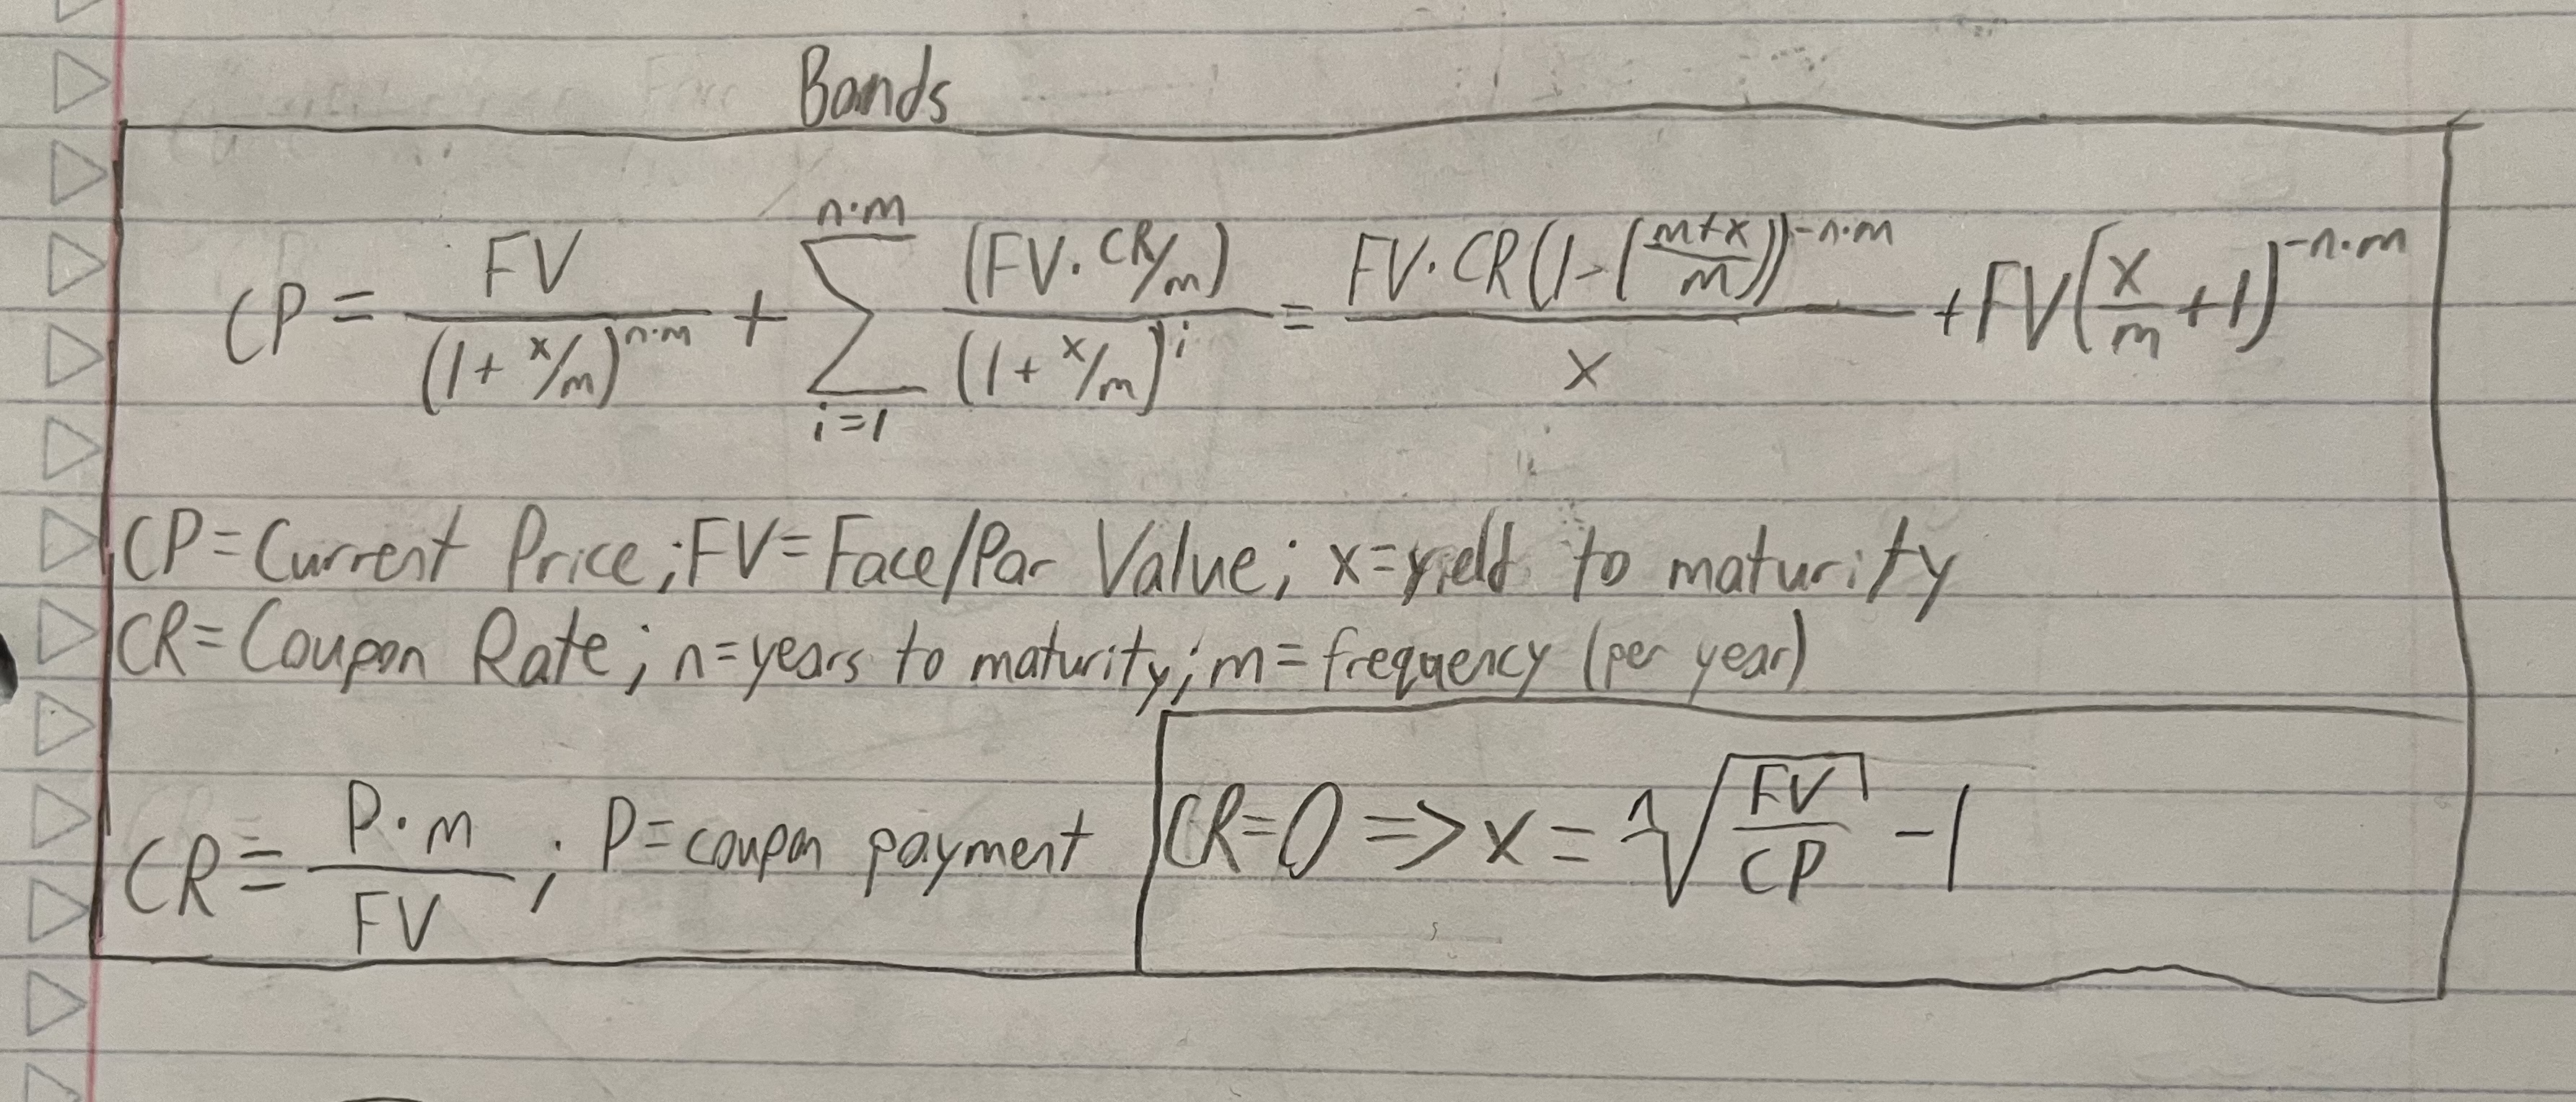 Bonds
CP = FV/(1 + x/m)^(n·m) + ∑_{i=1}^{n·m} (FV · CR/m)/(1 + x/m)^i = FV · CR(1 - ((m+x)/m))^(-n·m)/x + FV(x/m + 1)^(-n·m)
CP = Current Price; FV = Face/Par Value; x = yield to maturity
CR = Coupon Rate; n = years to maturity; m = frequency (per year)
CR = P · m/FV ; P = coupon payment
CR = 0 => x = ⁿ√(FV/CP) - 1